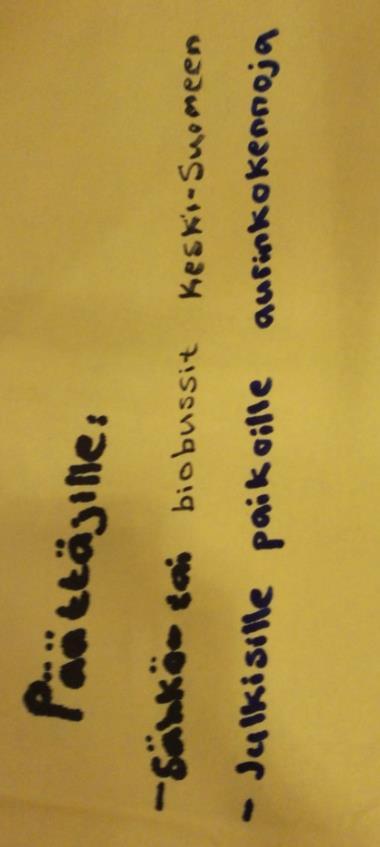 Päättäjille:
- Sähkö- tai biobussit Keski-Suomeen
- Julkisille paikoille aurinkokennoja